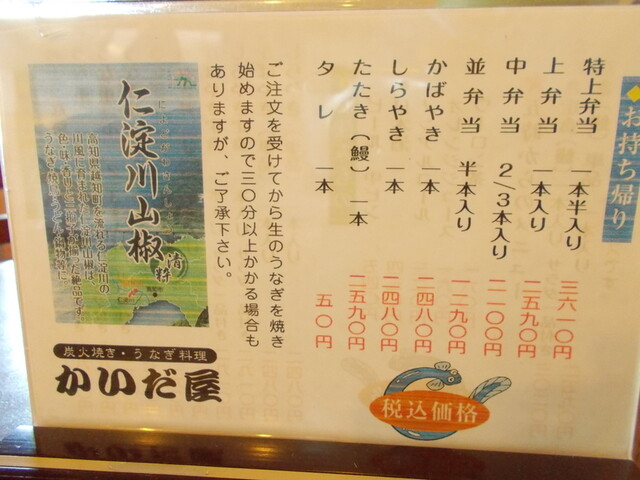 お持ち帰り
特上弁当 一本半入り 三六一〇円
上弁当 一本入り 二五九〇円
中弁当 2/3本入り 二一〇〇円
並弁当 半本入り 一二九〇円
かばやき 一本 二四八〇円
しらやき 一本 二四八〇円
たたき(鰻) 一本 二五九〇円
タレ 一本 五〇円
税込価格
ご注文を受けてから生のうなぎを焼き
始めますので三〇分以上かかる場合も
ありますが、ご了承下さい。
仁淀川山椒
清粋
高知県越知町を流れる仁淀川の
炭火焼き・うなぎ料理
かいだ屋